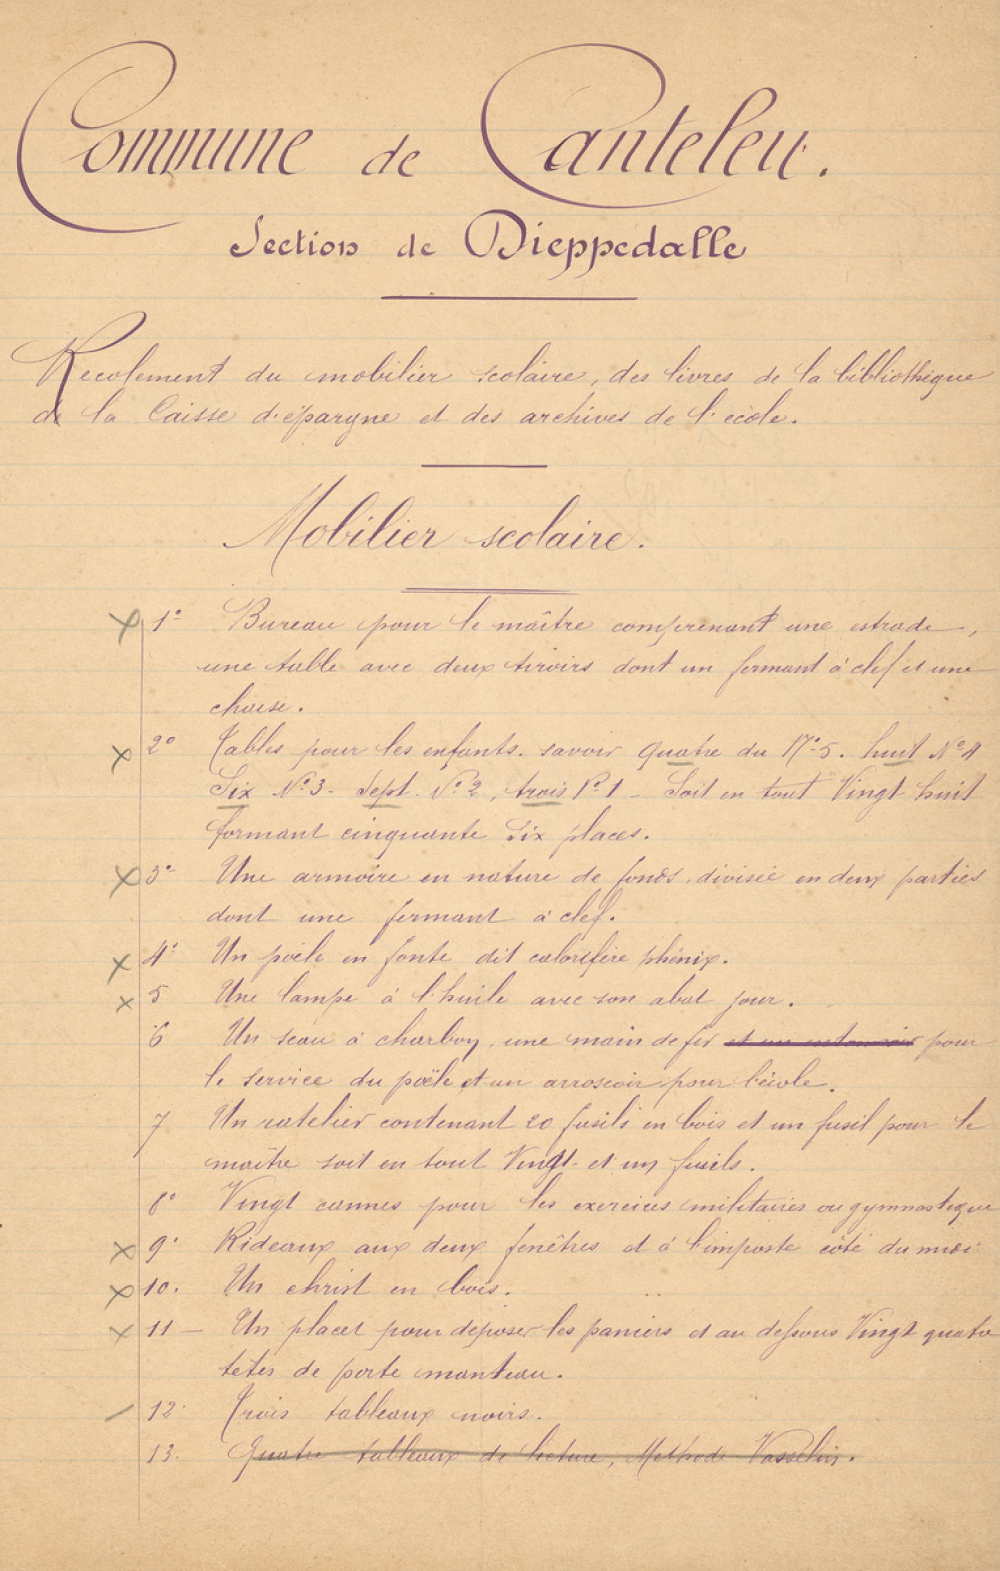 Commune de Canteleu.
Section de Dieppedalle
Recolement du mobilier scolaire, des livres de la bibliothèque
de la Caisse d'épargne et des archives de l'école.
Mobilier scolaire.
1° Bureau pour le maître comprenant une estrade,
une table avec deux tiroirs dont un fermant à clef et une
chaise.
2° Tables pour les enfants. savoir quatre du N°5. huit N°4
Six N°3. Sept. N°2, trois N°1 - Soit en tout Vingt huit
formant cinquante six places.
3° Une armoire en nature de fonds, divisée en deux parties
dont une fermant à clef.
4° Un poêle en fonte dit calorifère phénix.
5 Une lampe à l'huile avec son abat jour.
6 Un seau à charbon, une main de fer et un pour
le service du poële et un arrosoir pour l'école.
7 Un ratelier contenant 20 fusils en bois et un fusil pour le
maître soit en tout Vingt et un fusils.
8° Vingt cannes pour les exercices militaires ou gymnastique
9° Rideaux aux deux fenêtres et à l'imposte côté du midi
10. Un christ en bois.
11 - Un placet pour déposer les paniers et au dessous Vingt quatre
têtes de porte manteau.
12. Trois tableaux noirs.
13. Quatre tableaux de lecture, Méthode